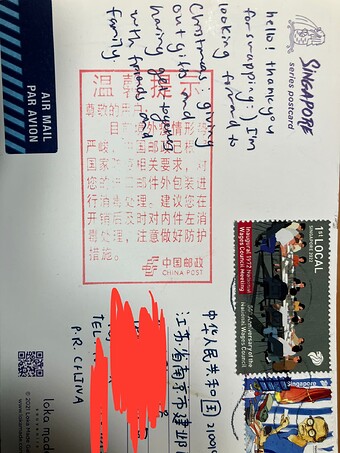 SINGAPORE
series postcard
hello! thank you
for swapping :) I'm
looking forward to
Christmas, giving
out gifts and
having get togethers
with friends and
family.
AIR MAIL
PAR AVION
温馨提示
尊敬的用户:
目前境外疫情形势
严峻,中国邮政已按
国家防疫相关要求,对
您的进口邮件外包装进
行消毒处理,建议您在
开销后及时对内件左消
毒处理,注意做好防护
措施。
中国邮政
CHINA POST
1ST LOCAL
SINGAPORE 2022
Inaugural 1972 National
Wages Council Meeting
50th Anniversary of the
National Wages Council
Singapore
中华人民共和国
江苏省南京市建邺区
TEL
P.R. CHINA
loka made